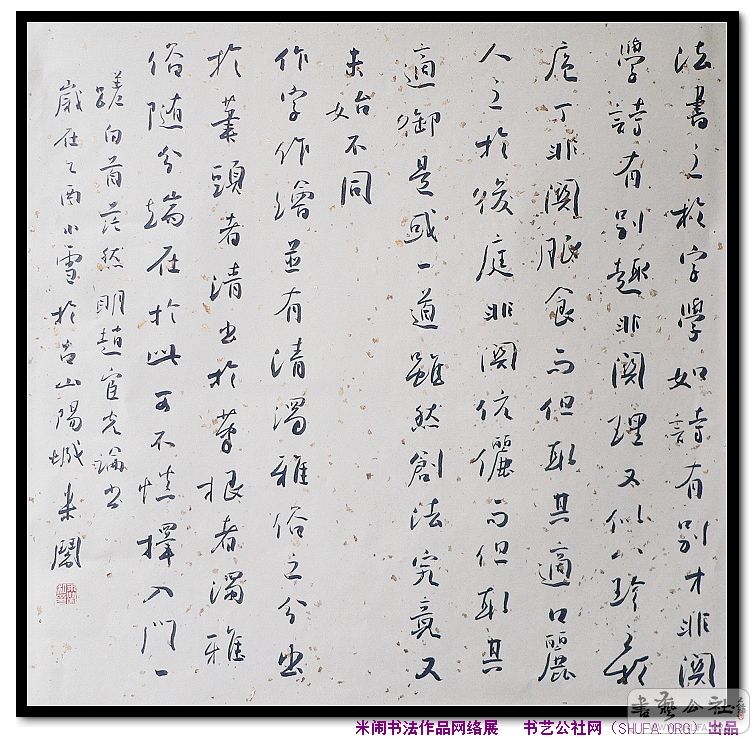 法書之於字學如詩有別才非関
學詩有別趣非関理又似八珍之於
庖丁非関服食而但取其適口麗
人之於後庭非関伉儷而但取其
適御是或一道雖然創法究竟又
未始不同
作字作繪並有清濁雅俗之分出
於筆頭者清出於筆根者濁雅
俗随分端在於此可不慎擇入門一
蹉白首茫然明趙宧光論書
嵗在乙酉小雪於古山陽城米閙
書藝公社
米闹书法作品网络展 书艺公社网（SHUFA.ORG）出品